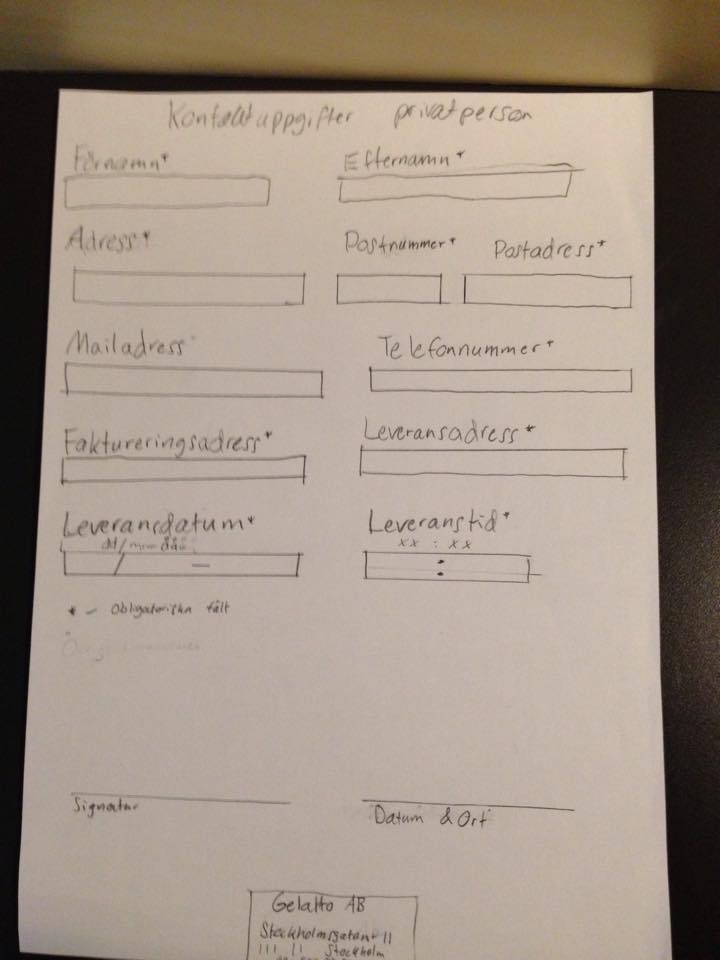 Kontaktuppgifter privatperson
Förnamn* Efternamn*
Adress* Postnummer* Postadress*
Mailadress Telefonnummer*
Faktureringsadress* Leveransadress*
Leveransdatum* Leveranstid*
dd/mm-åå xx : xx
/ – :
* – Obligatoriska fält
Signatur Datum & Ort
Gelatto AB
Stockholmsgatan 11
111 11 Stockholm